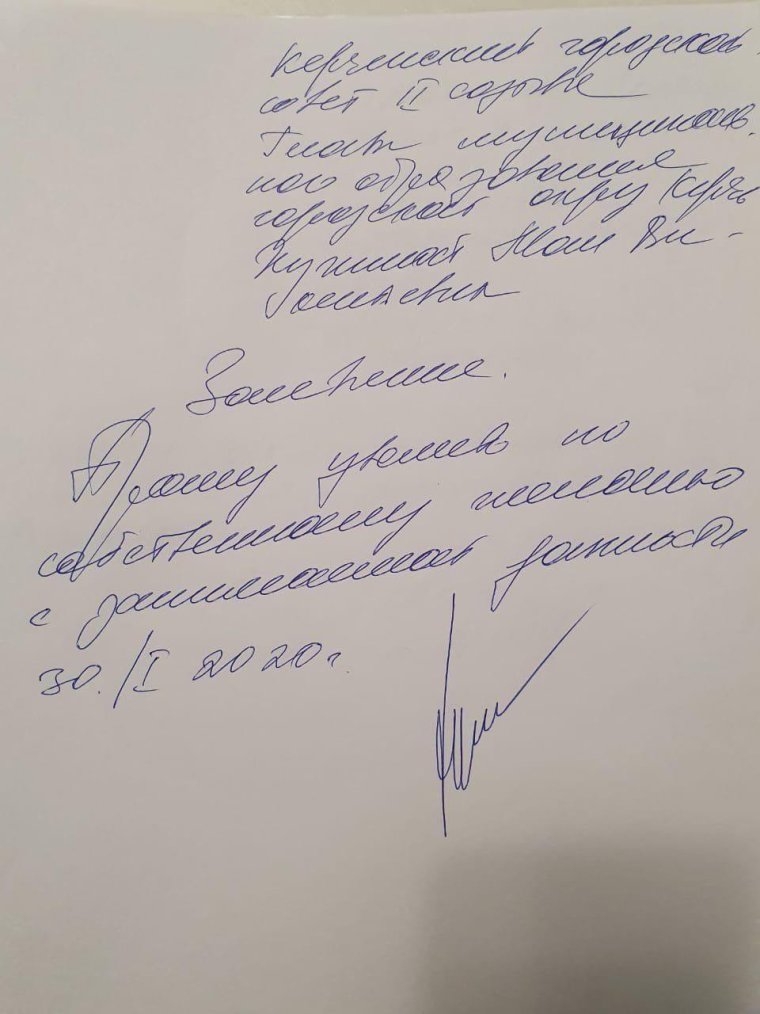 Керченский городской
совет II созыва
Главе муниципаль-
ного образования
городской округ Керчь
Николаевне
Заявление.
Прошу уволить по
собственному желанию
с занимаемой должности
30./I 2020 г.